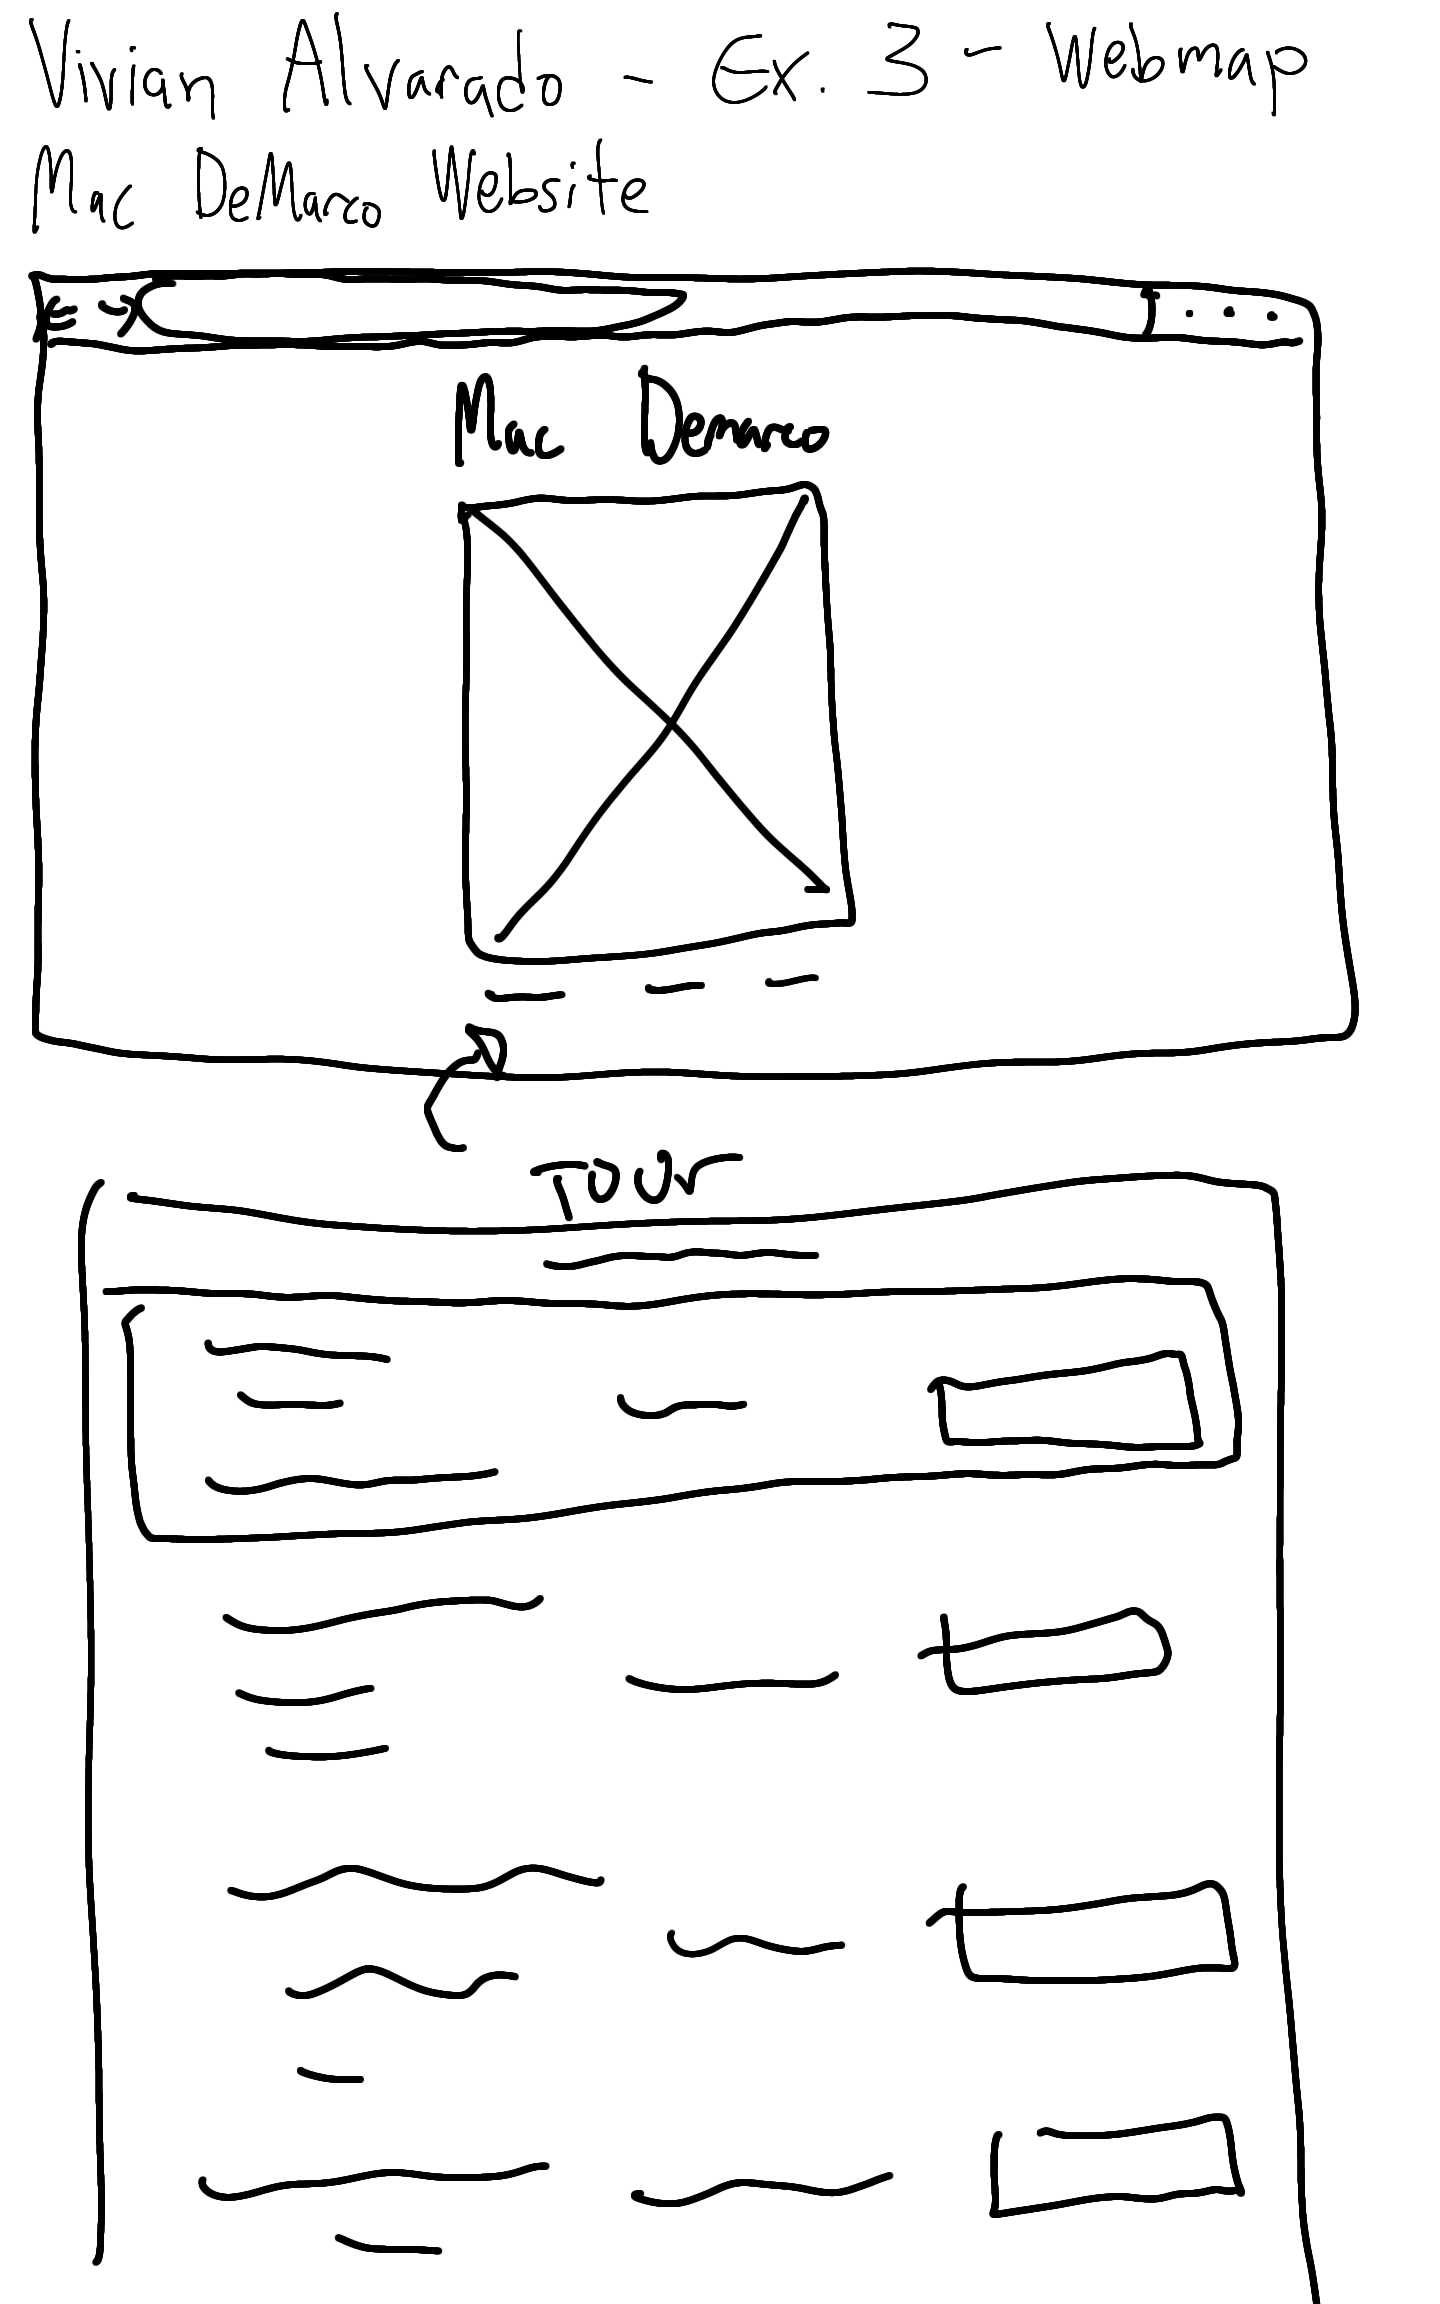 Vivian Alvarado - Ex. 3 - Webmap
Mac DeMarco Website
Mac Demarco
Tour